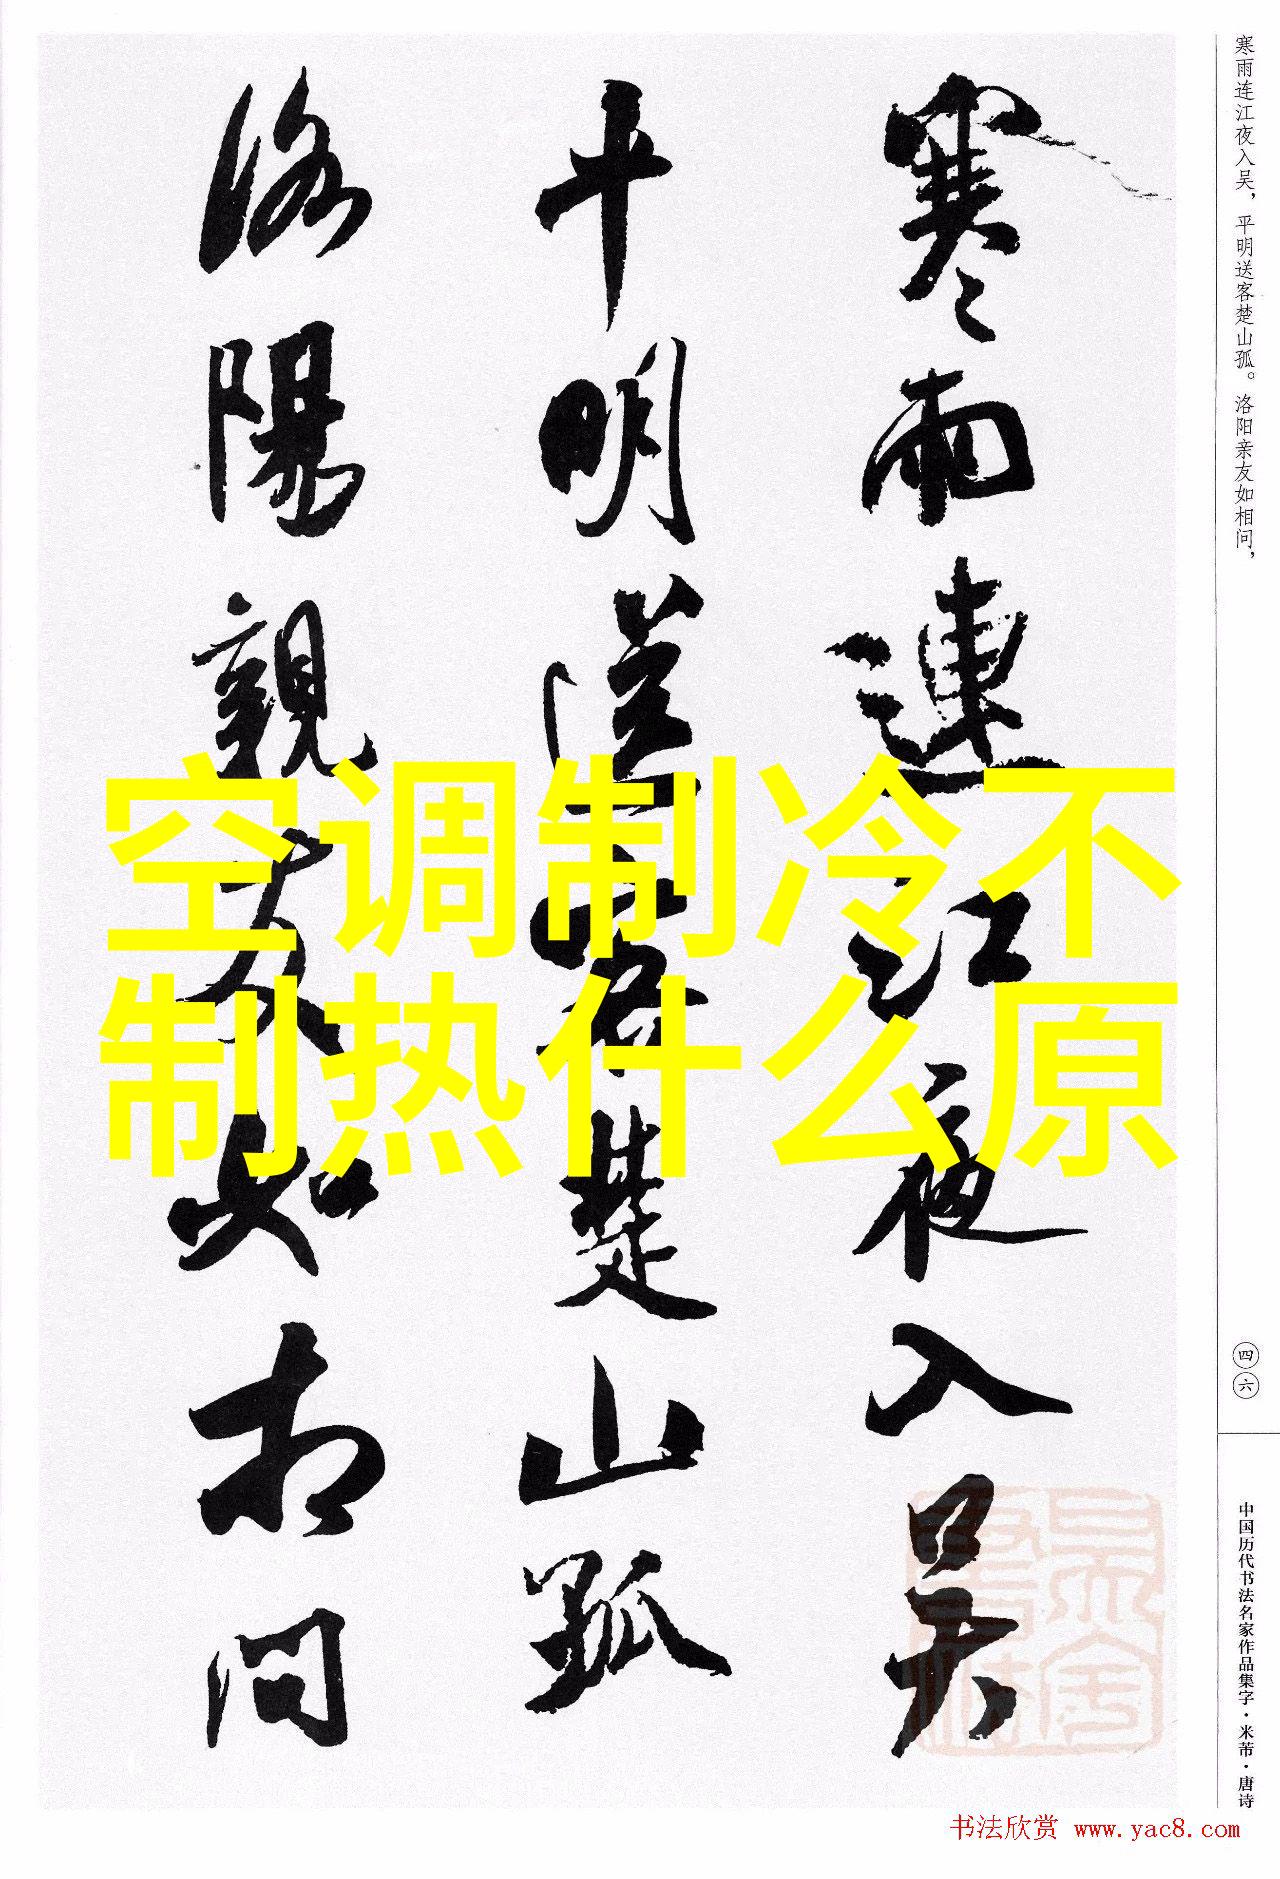 寒雨連江夜入吴
平明送客楚山孤
洛陽親友如相问
空调制冷不
制热什么原
寒雨连江夜入吴，平明送客楚山孤。洛阳亲友如相问，
四六
中国历代书法名家作品集字·米芾·唐诗
书法欣赏 www.yac8.com